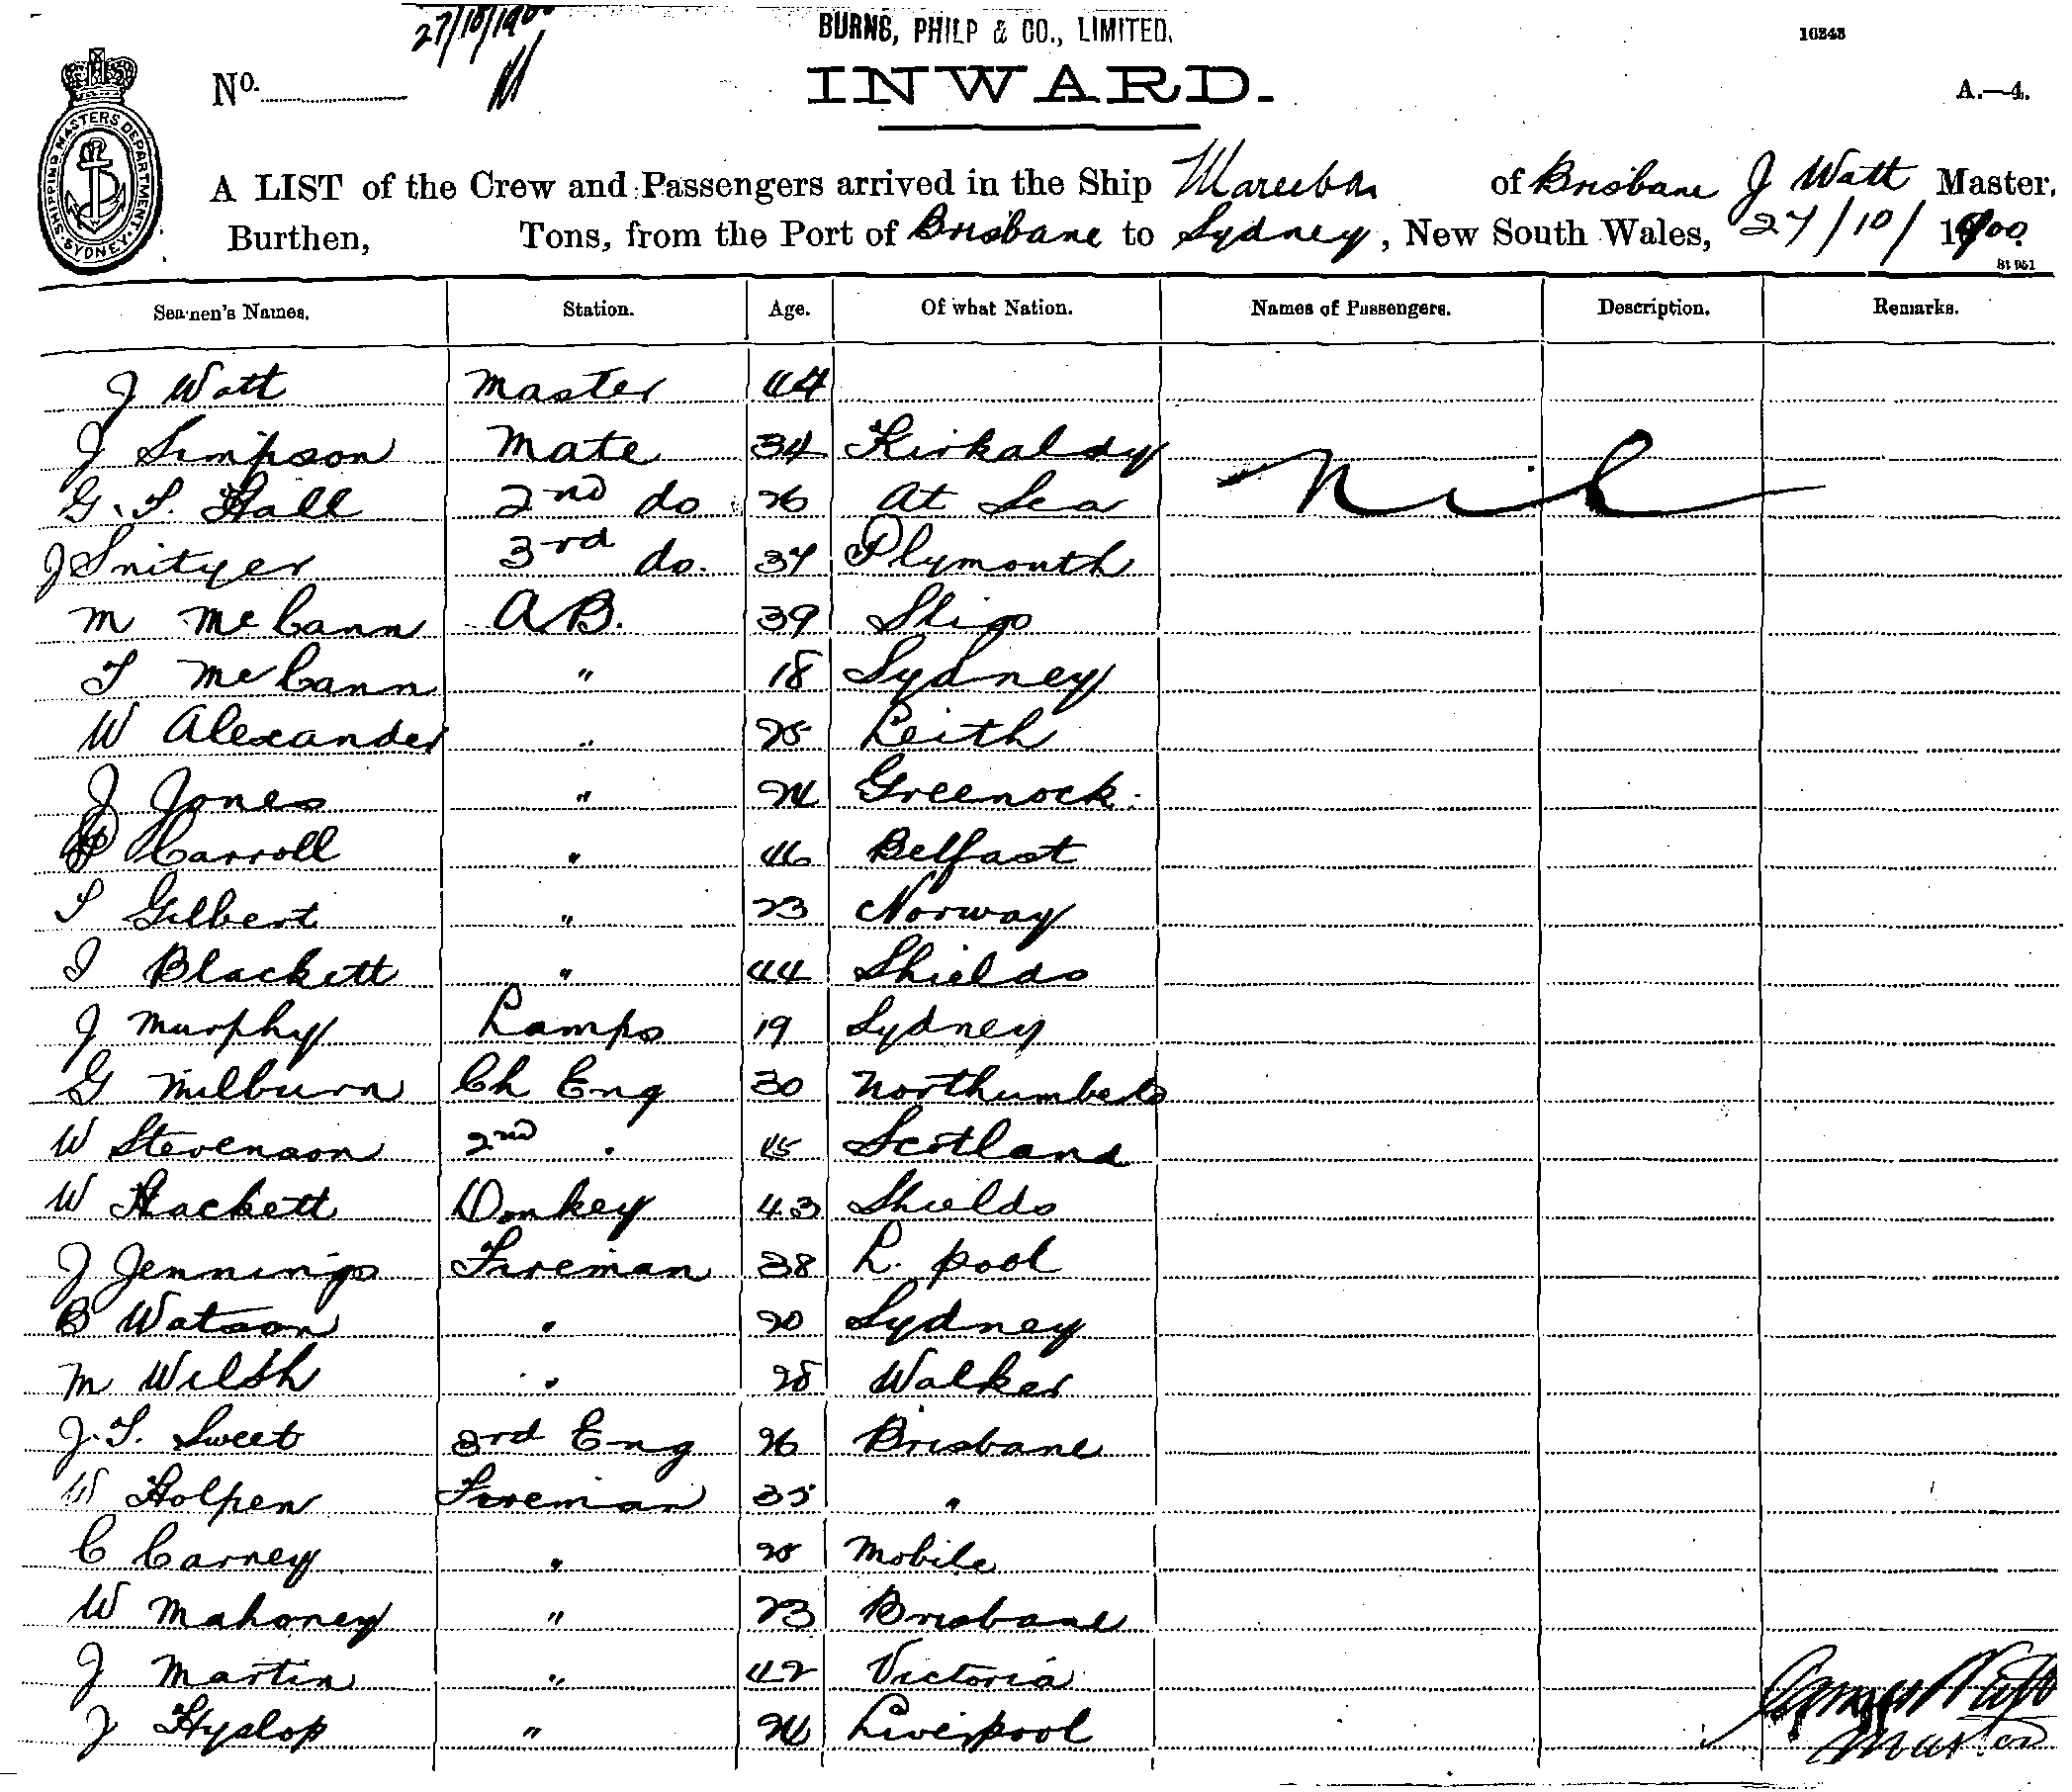 27/10/1900
BURNS, PHILP & CO., LIMITED.
16343
No.
INWARD.
A.—4.
SHIPPING MASTERS DEPARTMENT. SYDNEY.
A LIST of the Crew and Passengers arrived in the Ship Mareeba of Brisbane J Watt Master,
Burthen, Tons, from the Port of Brisbane to Sydney, New South Wales, 27/10/1900
Seamen's Names. Station. Age. Of what Nation. Names of Passengers. Description. Remarks.
J Watt Master 44
J Simpson Mate 34 Kirkaldy
Nil
G. S. Hall 2nd do 26 At Sea
J Snityer 3rd do. 37 Plymouth
M McCann A.B. 39 Sligo
T McCann " 18 Sydney
W Alexander " 25 Leith
J Jones " 24 Greenock.
P Carroll " 46 Belfast
S Gilbert " 23 Norway
I Blackett " 44 Shields
J Murphy Lamps 19 Sydney
G Milburn Ch Eng 30 Northumbeld
W Stevenson 2nd " 45 Scotland
W Hackett Donkey 43 Shields
J Jennings Fireman 38 L. pool
B Watson " 20 Sydney
M Wilsh " 28 Walker
J. S. Sweet 3rd Eng 26 Brisbane
W Holpen Fireman 35 "
C Carney " 28 Mobile
W Mahoney " 23 Brisbane
J Martin " 42 Victoria
J Hyslop " 24 Liverpool
James Watt
Master